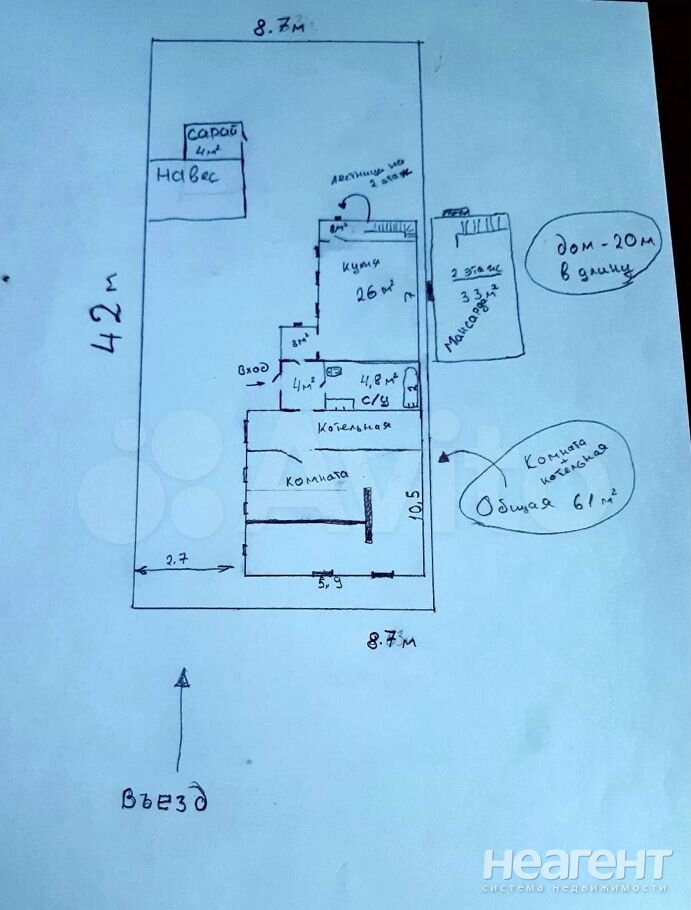 8.7м
сарай
4м²
Навес
лестница на
2 этаж
42 м
кухня
26 м²
7
2 этаж
33 м²
Мансарда
дом-20м
в длину
3м²
Вход
4м²
4,8 м²
с/у
Котельная
комната
10,5
Комната
+
котельная
Общая 61 м²
2.7
5,9
8.7м
Въезд
Avito
неагент
система недвижимости